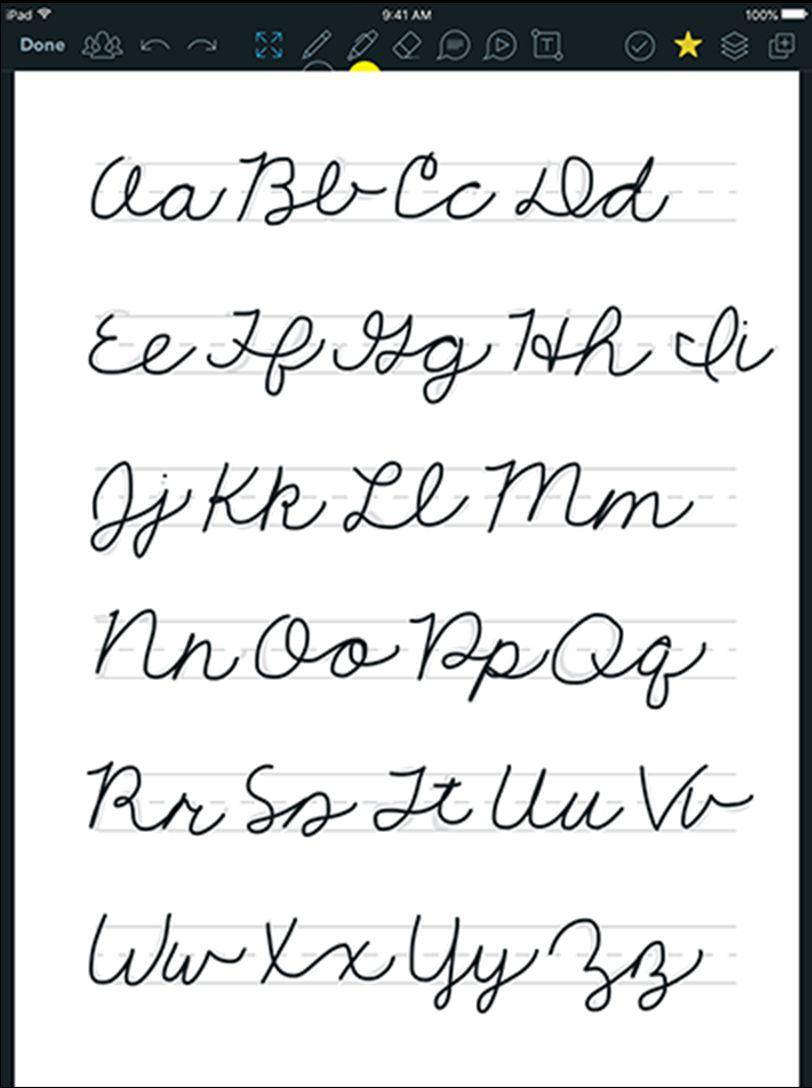 iPad 9:41 AM 100%
Done T
Aa Bb Cc Dd
Ee Ff Gg Hh Ii
Jj Kk Ll Mm
Nn Oo Pp Qq
Rr Ss Tt Uu Vv
Ww Xx Yy Zz